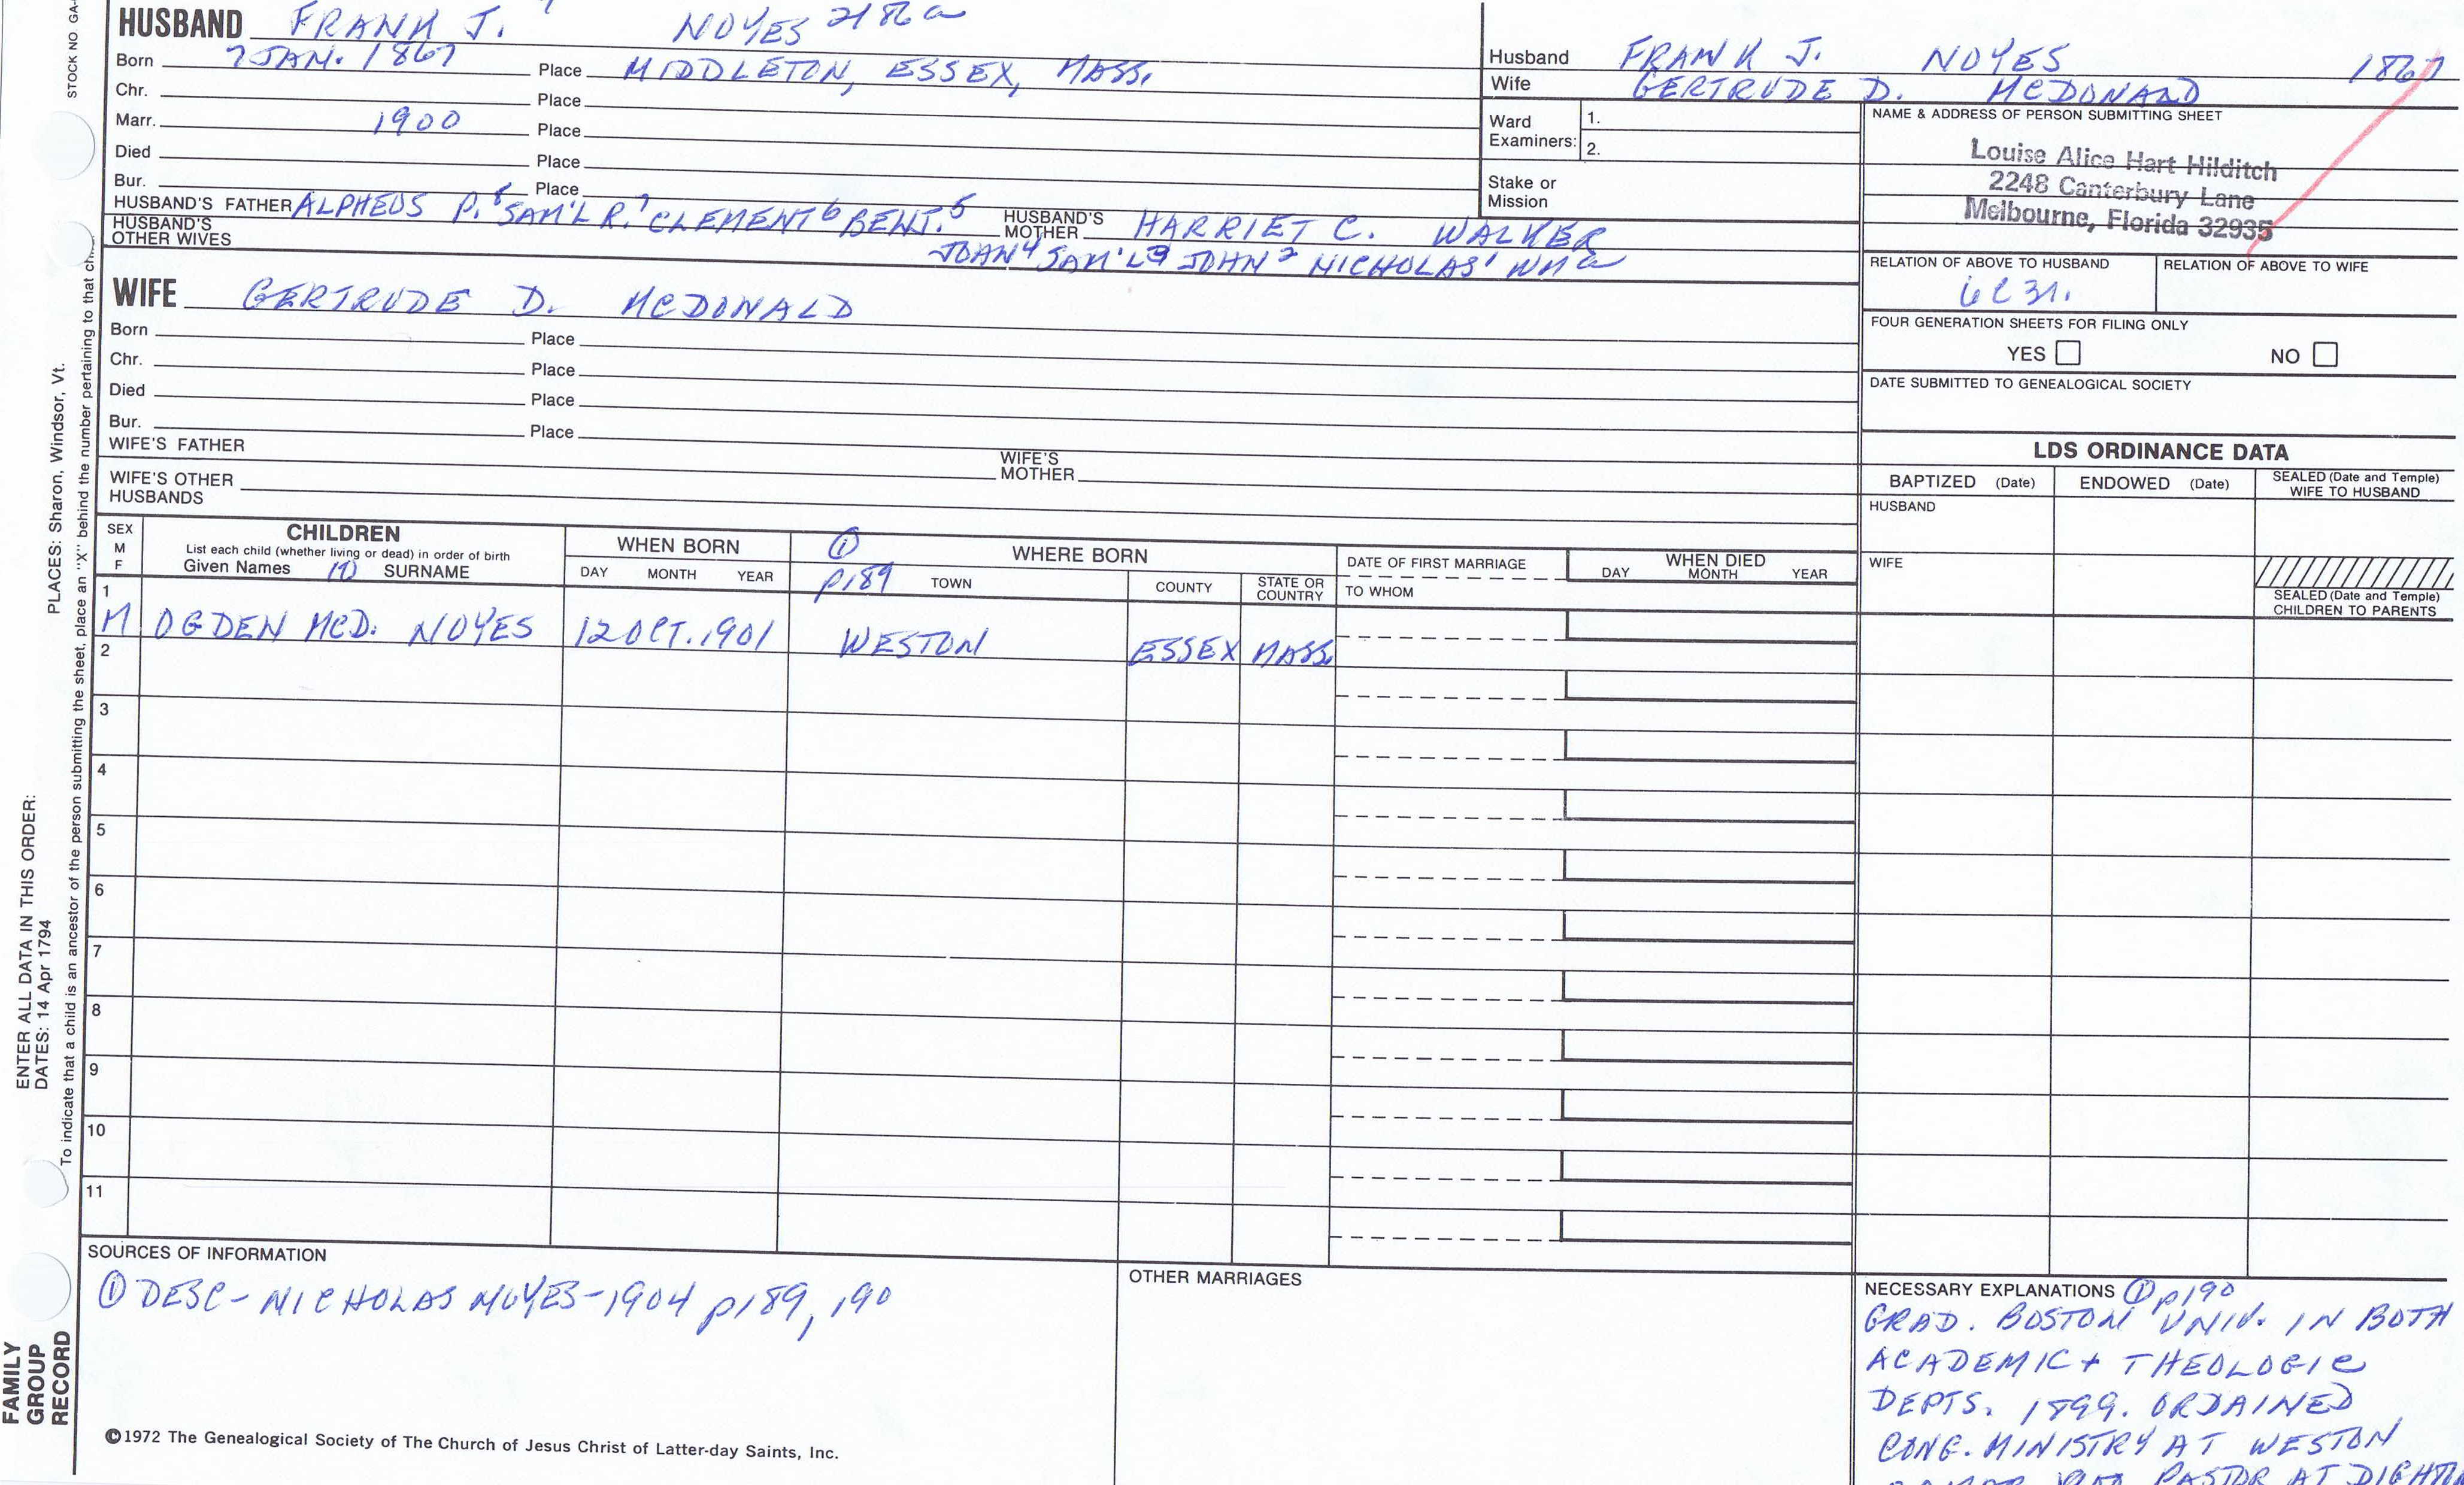 STOCK NO. GA-
HUSBAND FRANK J. NOYES 2186a
Born 7 JAN. 1867 Place MIDDLETON, ESSEX, MASS.
Chr. Place
Marr. 1900 Place
Died Place
Bur. Place
HUSBAND'S FATHER ALPHEUS P.8 SAM'L R.7 CLEMENT6 BENT.5 HUSBAND'S MOTHER HARRIET C. WALKER
HUSBAND'S OTHER WIVES JOHN4 SAM'L3 JOHN2 NICHOLAS1 WMa
WIFE GERTRUDE D. MCDONALD
Born Place
Chr. Place
Died Place
Bur. Place
WIFE'S FATHER WIFE'S MOTHER
WIFE'S OTHER HUSBANDS
Husband FRANK J. NOYES 1867
Wife GERTRUDE D. MCDONALD
Ward Examiners: 1.
2.
Stake or Mission
NAME & ADDRESS OF PERSON SUBMITTING SHEET
Louise Alice Hart Hilditch
2248 Canterbury Lane
Melbourne, Florida 32935
RELATION OF ABOVE TO HUSBAND RELATION OF ABOVE TO WIFE
FOUR GENERATION SHEETS FOR FILING ONLY
YES NO
DATE SUBMITTED TO GENEALOGICAL SOCIETY
LDS ORDINANCE DATA
BAPTIZED (Date) ENDOWED (Date) SEALED (Date and Temple) WIFE TO HUSBAND
HUSBAND
WIFE
SEALED (Date and Temple) CHILDREN TO PARENTS
SEX M F
CHILDREN
List each child (whether living or dead) in order of birth
Given Names (1) SURNAME
WHEN BORN
DAY MONTH YEAR
① p189
WHERE BORN
TOWN COUNTY STATE OR COUNTRY
DATE OF FIRST MARRIAGE
TO WHOM
WHEN DIED
DAY MONTH YEAR
1 M OGDEN MCD. NOYES 12 OCT. 1901 WESTON ESSEX MASS.
2
3
4
5
6
7
8
9
10
11
SOURCES OF INFORMATION
① DESC- NICHOLAS NOYES-1904 p189, 190
OTHER MARRIAGES
NECESSARY EXPLANATIONS ① p190
GRAD. BOSTON UNIV. IN BOTH
ACADEMIC + THEOLOGIC
DEPTS. 1899. ORDAINED
CONG. MINISTRY AT WESTON
PASTOR AT
©1972 The Genealogical Society of The Church of Jesus Christ of Latter-day Saints, Inc.
ENTER ALL DATA IN THIS ORDER:
DATES: 14 Apr 1794 PLACES: Sharon, Windsor, Vt.
To indicate that a child is an ancestor of the person submitting the sheet, place an "X" behind the number pertaining to that
FAMILY
GROUP
RECORD